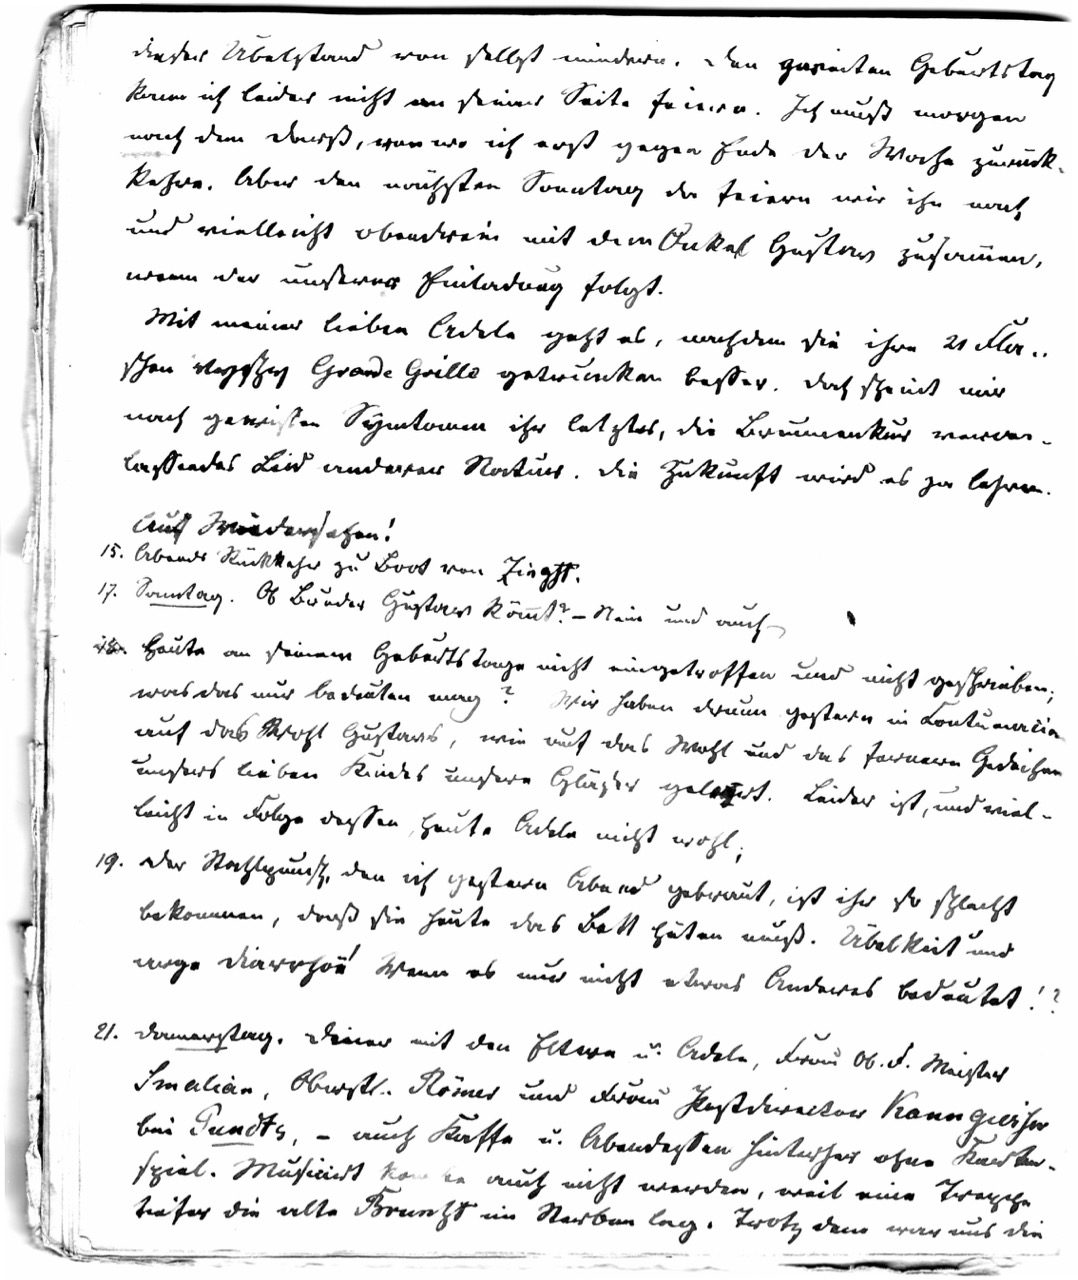 dieser Übelstand von selbst mindern. Den zweiten Geburtstag
kann ich leider nicht an seiner Seite feiern. Ich muß morgen
nach dem Darß, von wo ich erst gegen Ende der Woche zurück-
kehre. Aber den nächsten Sonntag da feiern wir ihn nach,
und vielleicht obendrein mit dem Onkel Gustav zusam̄en,
wenn der unserer Einladung folgt.
Mit meiner lieben Adele geht es, nachdem sie ihre 21 Fla-
schen Grande Grille getrunken besser. Doch scheint mir
nach gewissen Symtomen ihr letztes, die Brunnenkur veran-
lassendes Leid anderer Natur. Die Zukunft wird es ja lehren.
Auf Wiedersehen!
15. Abends Rückkehr zu Boot von Zingst.
17. Sonntag. Ob Bruder Gustav kōmt? – Nein und auch
18. Heute an seinem Geburtstage nicht eingetroffen und nicht geschrieben;
was das nur bedeuten mag? Wir haben drum gestern in Contumaciam
auf das Wohl Gustavs, wie auf das Wohl und das fernere Gedeihen
unsers lieben Kindes unsere Gläser geleert. Leider ist, und viel-
leicht in Folge dessen, heute Adele nicht wohl;
19. Der Punsch, den ich gestern Abend gebraut, ist ihr so schlecht
bekommen, daß sie heute das Bett hüten muß. Übelkeit und
arge Diarrhöe! Wenn es nur nicht etwas Anderes bedeutet!?
21. Donnerstag. Diner mit den Eltern u. Adele, Frau Ob. F. Meister
Smalian, Oberstl. Römer und Frau Postdirector
bei Pundts, – auch Kaffe u. Abendessen hinterher ohne Karten-
spiel. Musicirt konnte auch nicht werden, weil eine Treppe
tiefer die alte im Sterben lag. Trotz dem war uns die